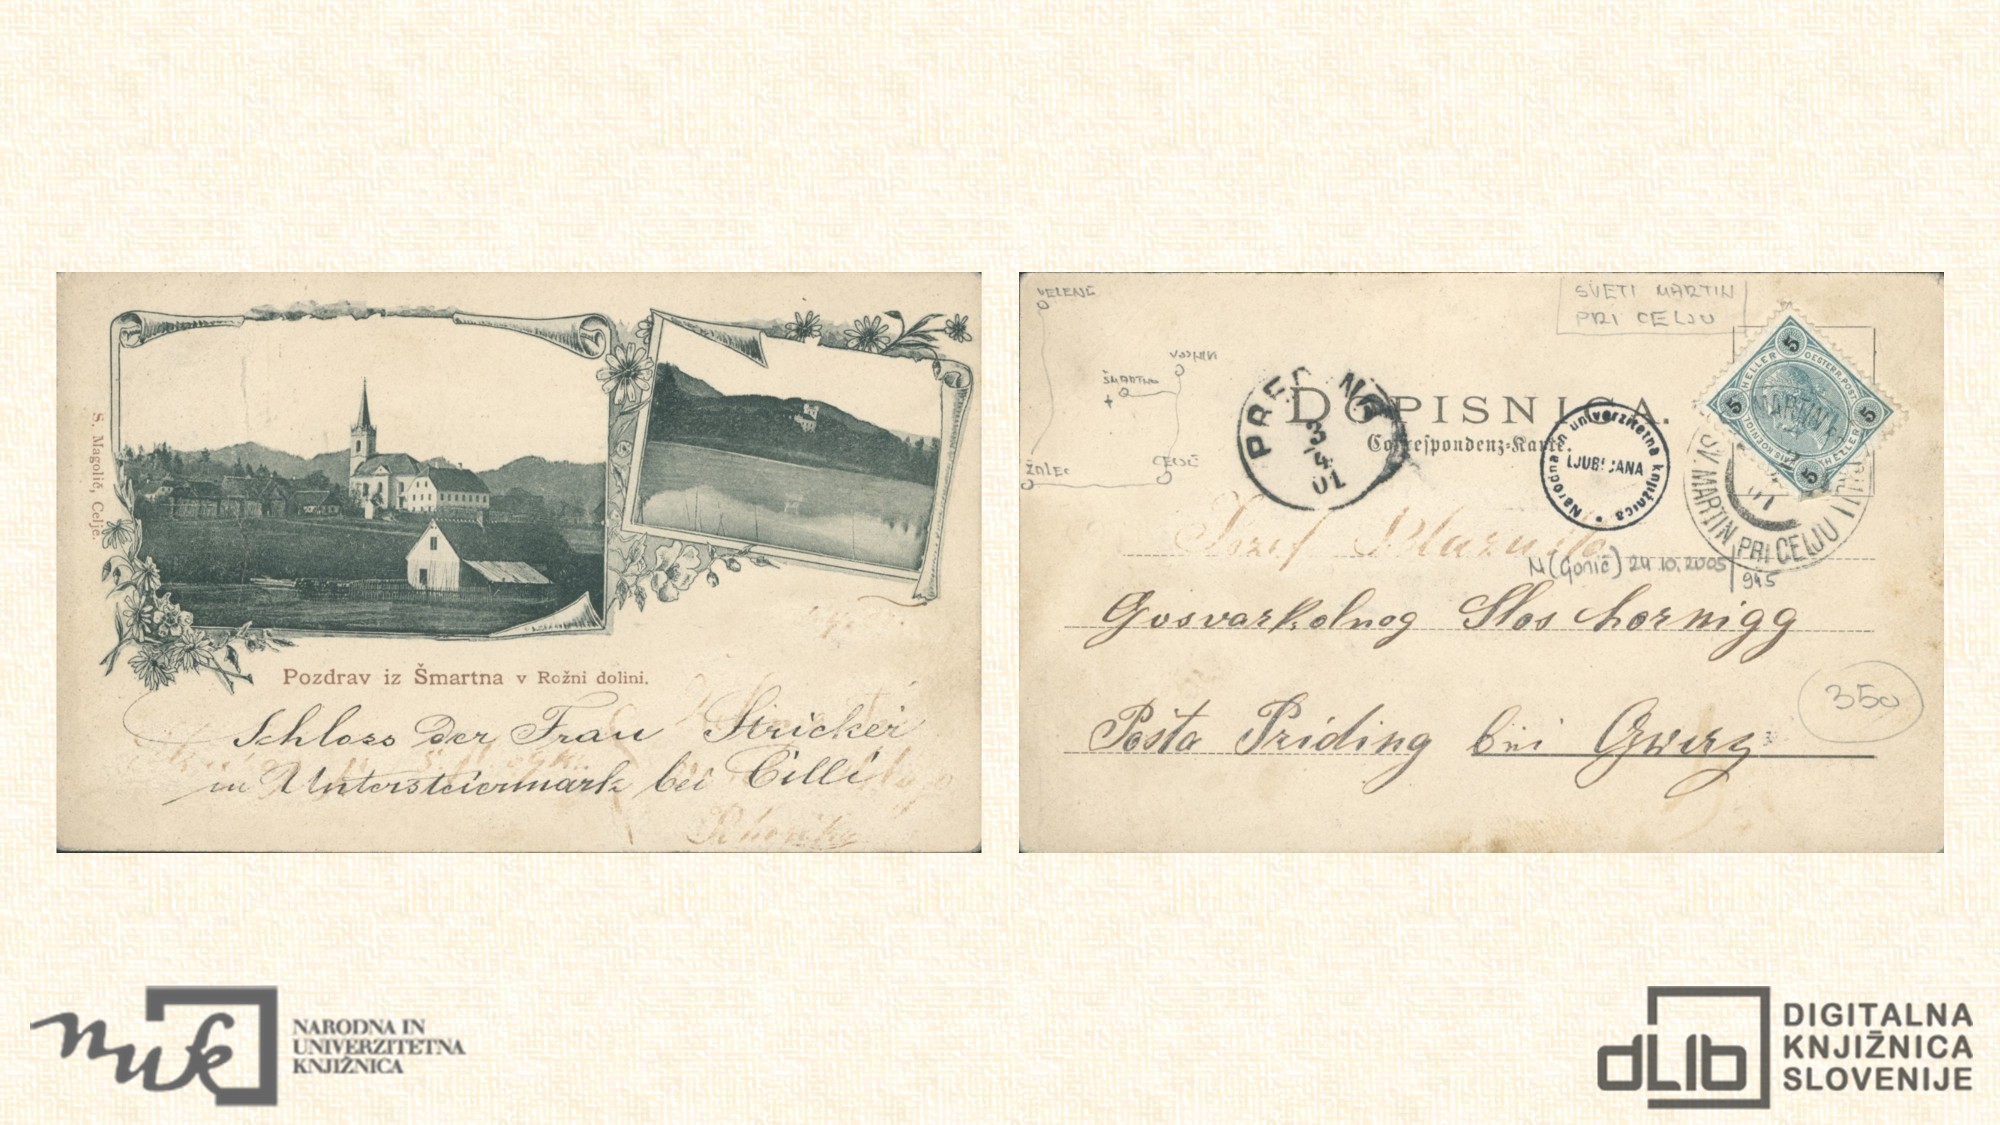 S. Magolič, Celje.
Pozdrav iz Šmartna v Rožni dolini.
Schloss der Frau Stricker
in Untersteiermark bei Cilli
VELENJE
SVETI MARTIN
PRI CELJU
ŠMARTNO
ŽALEC
CELJE
DOPISNICA.
Correspondenz-Karte.
3
4
01
Narodna in univerzitetna knjižnica
LJUBLJANA
5 HELLER 5 OESTERR. POST 5 HELLER 5
SV. MARTIN PRI CELJU
Josef
N (Gonič) 24.10.2005
945
Gosvarkolnog Slos hornigg
350
Pošta Priding bei
nuk
NARODNA IN
UNIVERZITETNA
KNJIŽNICA
dLib
DIGITALNA
KNJIŽNICA
SLOVENIJE